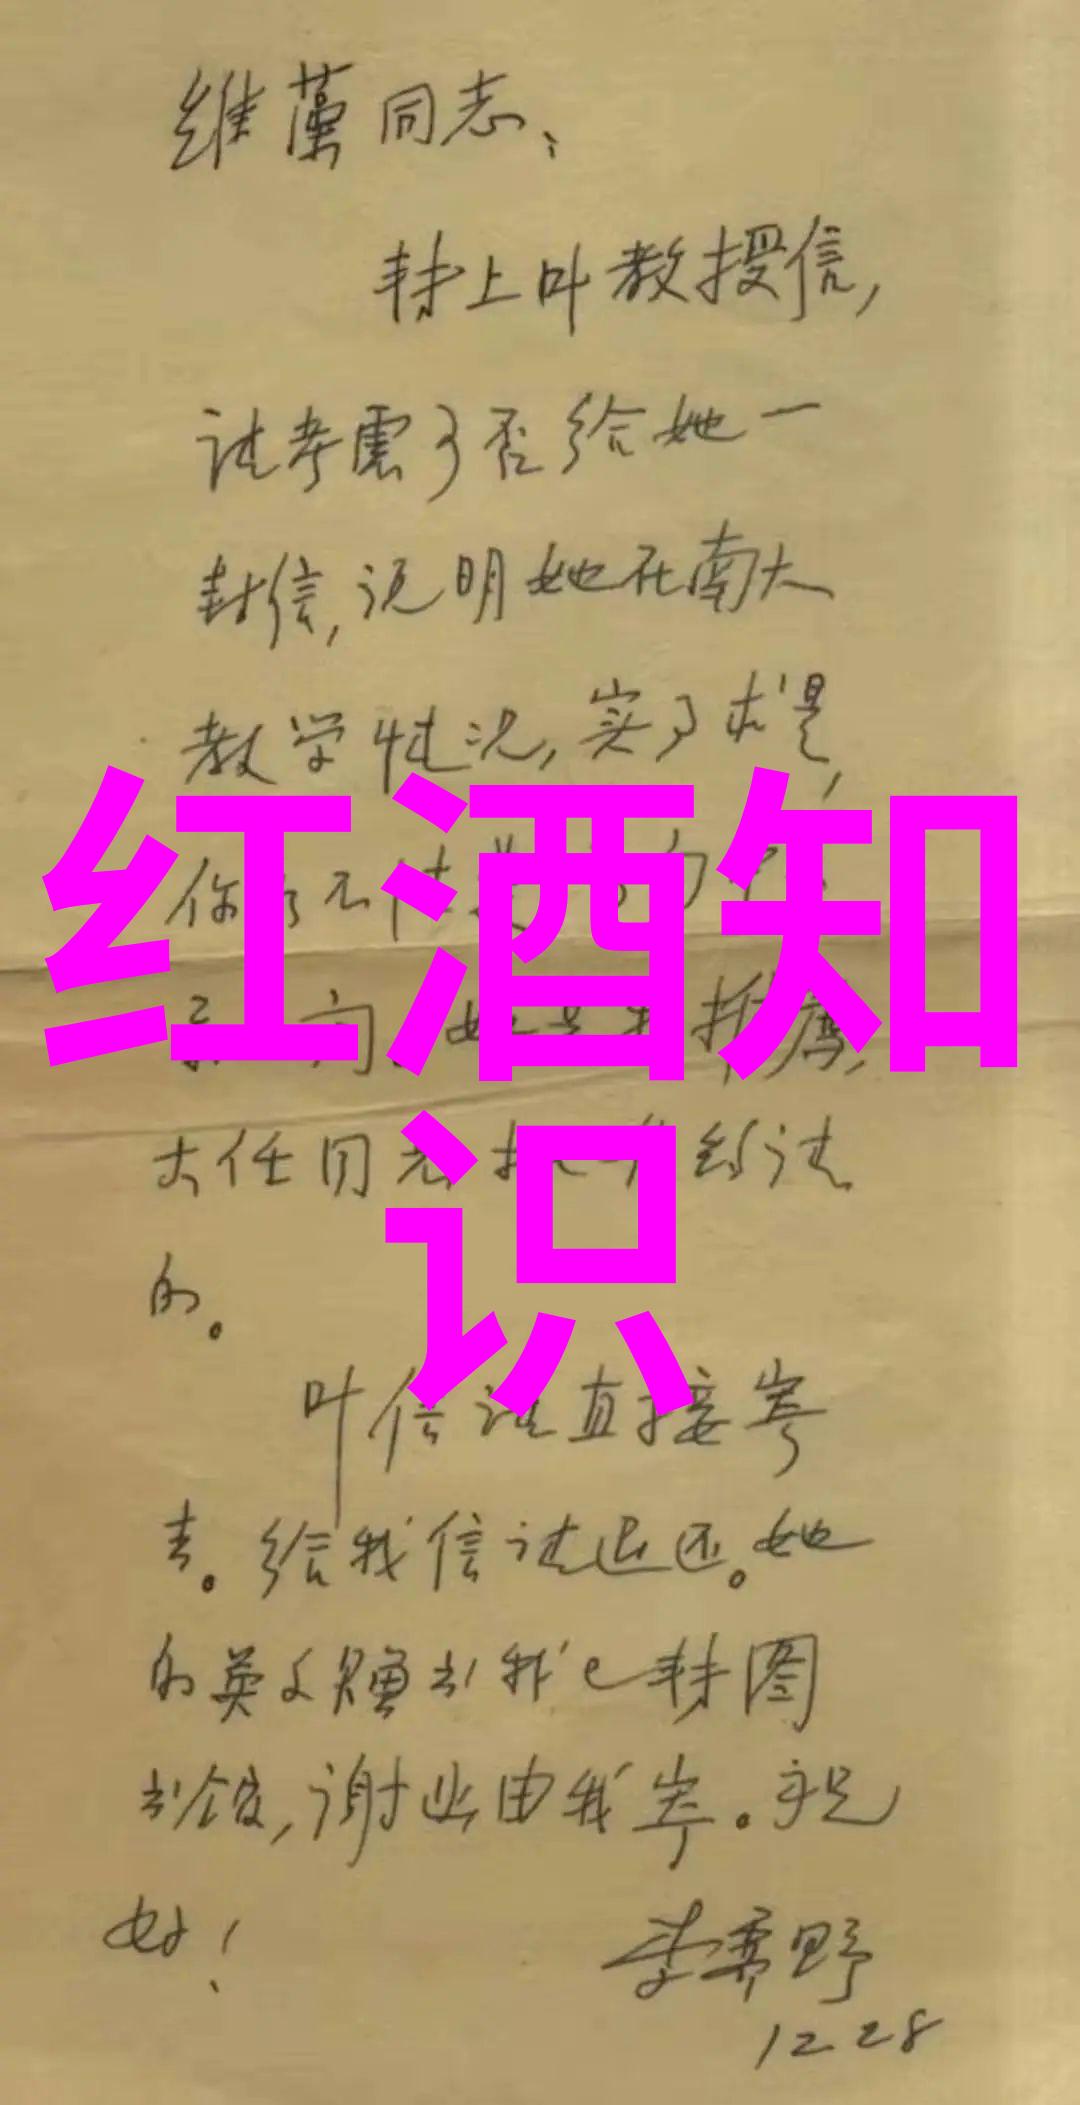 维藻同志:
转上叶教授信,
请考虑可否给她一
封信,说明她在南大
教学情况,实事求是,
你
推荐,
大任同志
的。
叶信请直接寄
去。给我信请退还。她
的英文赠书我已转图
书馆,谢业由我寄。祝
好!
李霁野
12.28
红酒知
识